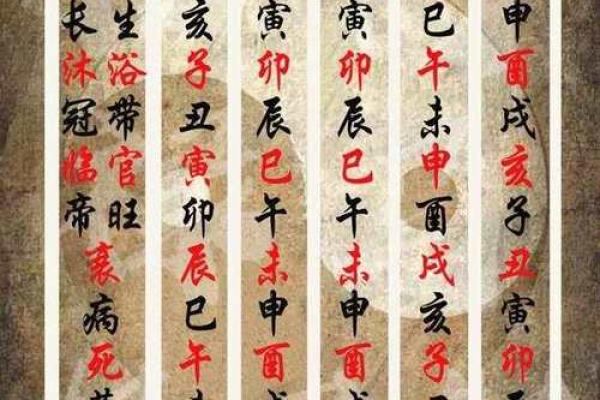 长生 亥 寅 寅 巳 申
沐浴 子 卯 卯 午 酉
冠带 丑 辰 辰 未 戌
临官 寅 巳 巳 申 亥
帝旺 卯 午 午 酉 子
衰 辰 未 未 戌 丑
病 巳 申 申 亥 寅
死 午 酉 酉 子 卯